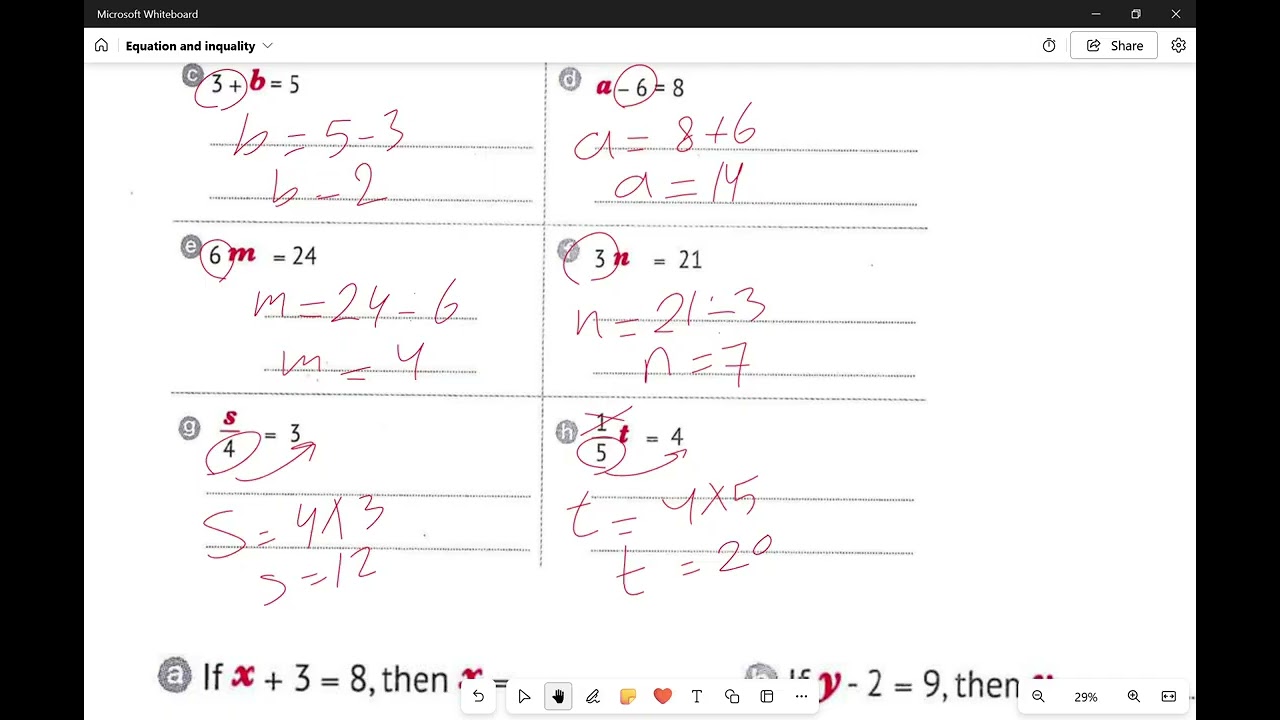 Microsoft Whiteboard
Equation and inquality
Share
c 3 + b = 5
b = 5 - 3
b = 2
d a - 6 = 8
a = 8 + 6
a = 14
e 6 m = 24
m = 24 ÷ 6
m = 4
f 3 n = 21
n = 21 ÷ 3
n = 7
g s/4 = 3
S = 4 × 3
s = 12
h 1/5 t = 4
t = 4 × 5
t = 20
a If x + 3 = 8, then x =
If y - 2 = 9, then
29%